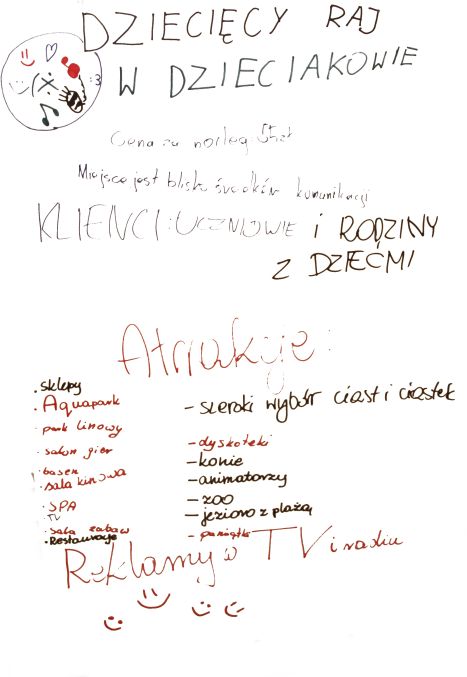 DZIECIĘCY RAJ
W DZIECIAKOWIE
:3
Cena za nocleg zł
Miejsce jest blisko środków komunikacji
KLIENCI: UCZNIOWIE i RODZINY
Z DZIEĆMI
Atrakcje:
• sklepy
• Aquapark
• park linowy
• salon gier
• basen
• sala kinowa
• SPA
• TV
• sala zabaw
• Restauracje
- szeroki wybór ciast i ciastek
- dyskoteki
- konie
- animatorzy
- zoo
- jezioro z plażą
- pamiątki
Reklamy w TV i radiu